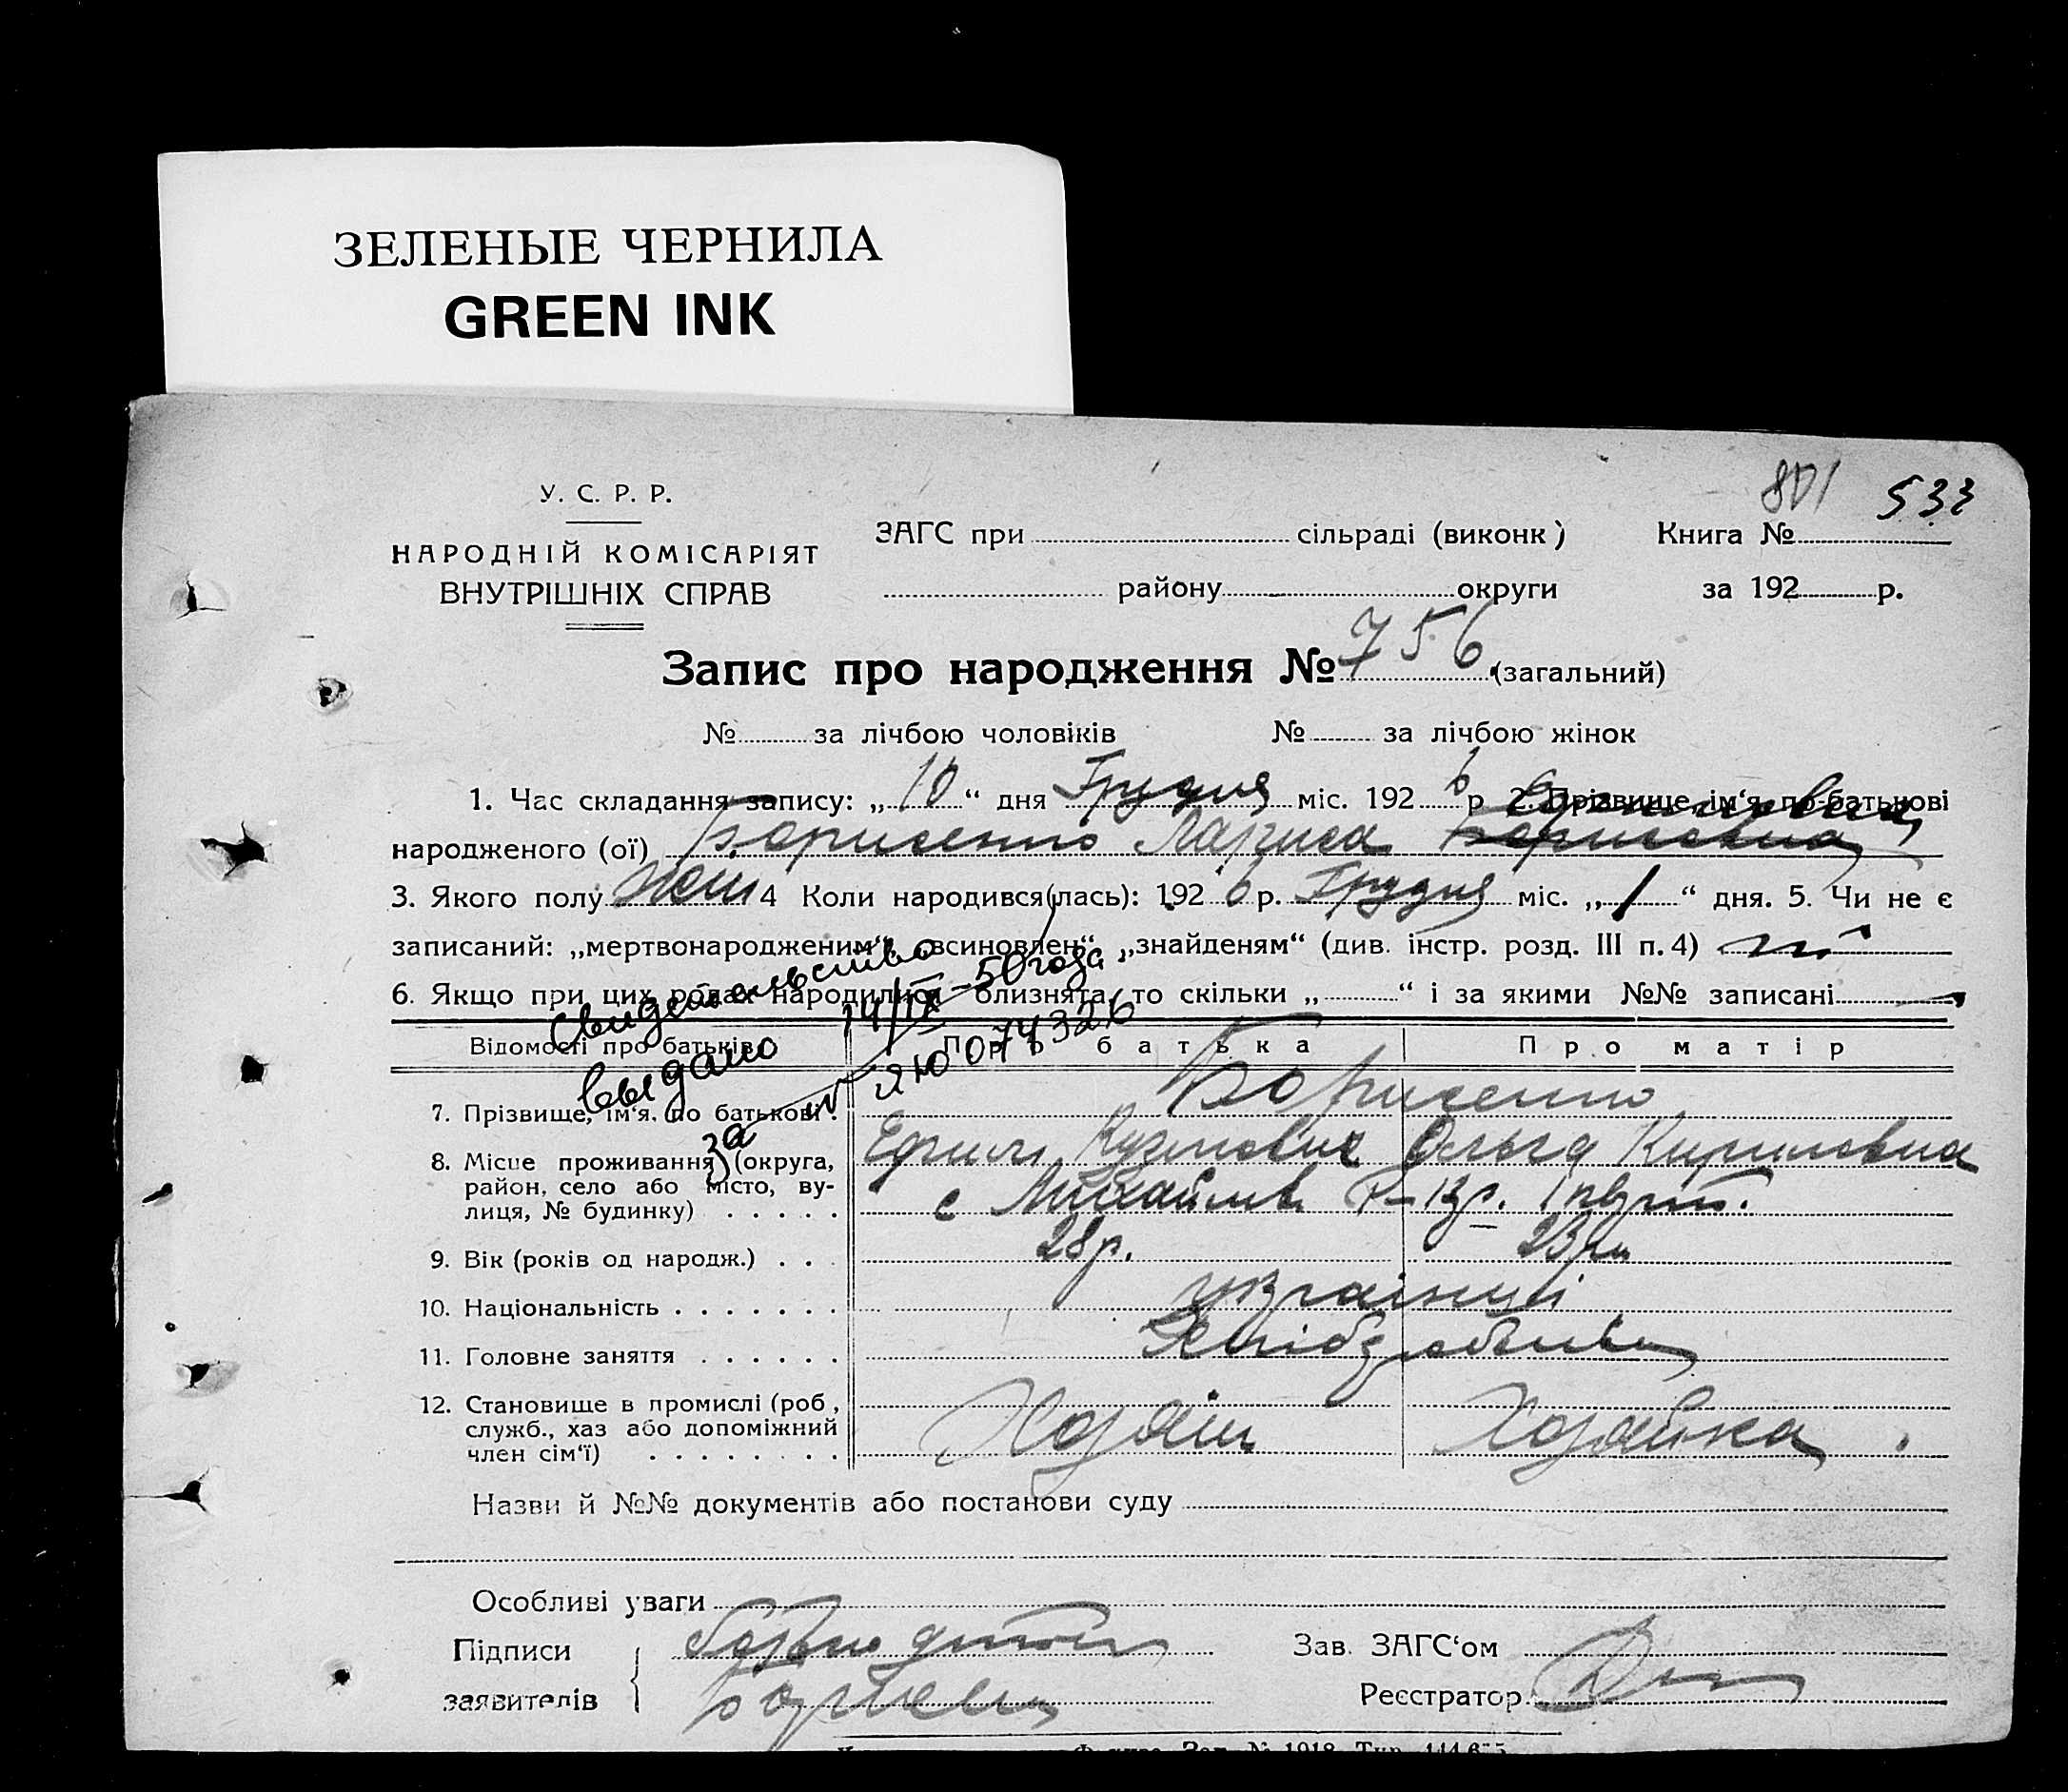 ЗЕЛЕНЫЕ ЧЕРНИЛА
GREEN INK
801 533
У. С. Р. Р.
НАРОДНІЙ КОМІСАРІЯТ
ВНУТРІШНІХ СПРАВ
ЗАГС при сільраді (виконк) Книга №
району округи за 192 р.
Запис про народження № 756 (загальний)
№ за лічбою чоловіків № за лічбою жінок
1. Час складання запису: „10“ дня Грудня міс. 1926 р 2. Прізвище, ім‘я, по-батькові
народженого (ої) Борисенко Лариса Борисовна
3. Якого полу жін 4 Коли народився(лась): 1926 р. Грудня міс. „1“ дня. 5. Чи не є
записаний: „мертвонародженим“, „всиновлен“, „знайденям“ (див. інстр. розд. III п. 4) ні
6. Якщо при цих родах народилися близнята, то скільки „ “ і за якими №№ записані
Свидетельство
выдано 14/IX-50 года
за № ЯЮ 074326
Відомості про батьків Про батька Про матір
7. Прізвище, ім‘я, по батькові . Борисенко
Ефим Кузмович Ольга Кириловна
8. Місце проживання (округа,
район, село або місто, ву-
лиця, № будинку) . . . . . с
9. Вік (років од народж.) . . . 28 р. 23 рік
10. Національність . . . . . . . українці
11. Головне заняття . . . . . . Хліборобство
12. Становище в промислі (роб.,
служб., хаз або допоміжний
член сім‘ї) . . . . . . . . Хозяїн Хозяйка
Назви й №№ документів або постанови суду
Особливі уваги
Підписи
заявителів
Зав. ЗАГС‘ом
Реєстратор
Зал. № 1918 Тир.